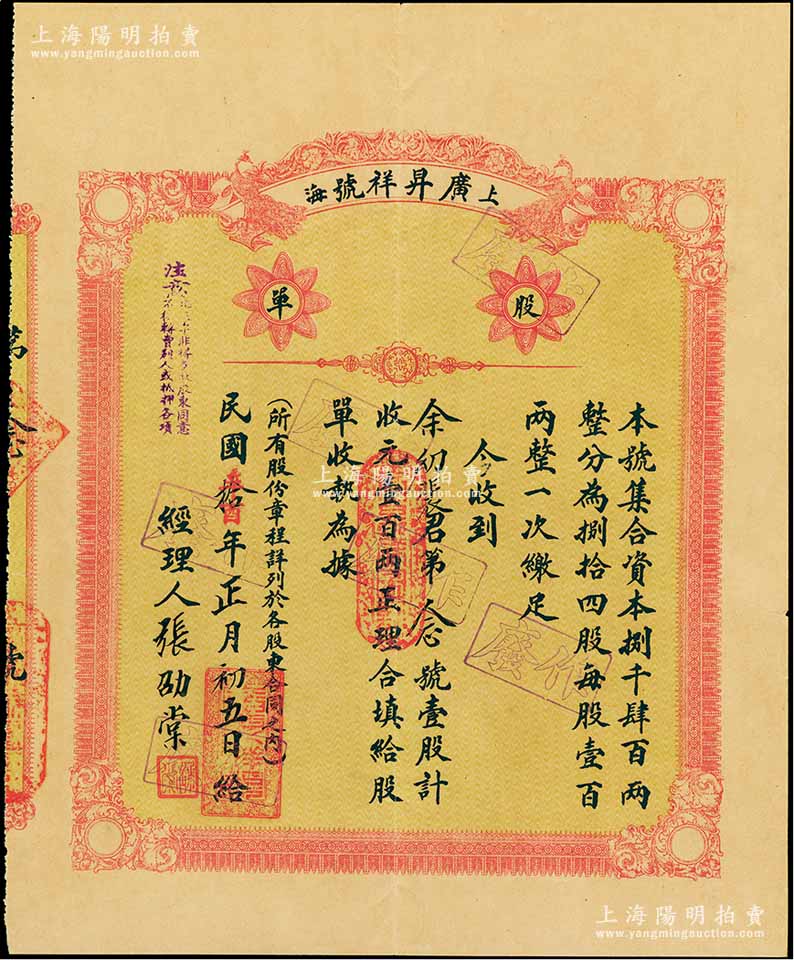 上海陽明拍賣
www.yangmingauction.com
上海廣昇祥號
股單
本號集合資本捌千肆百兩
整分為捌拾四股每股壹百
兩整一次繳足
今收到
余君第念號壹股計
收元壹百兩正理合填給股
單收執為據
(所有股份章程詳列於各股東合同之內)
民國拾年正月初五日給
經理人張劭棠
注意
非得各股東同意
轉賣別人或抵押各項
作廢
作廢
第念
號
上海陽明拍賣
www.yangmingauction.com
上海陽明拍賣
www.yangmingauction.com